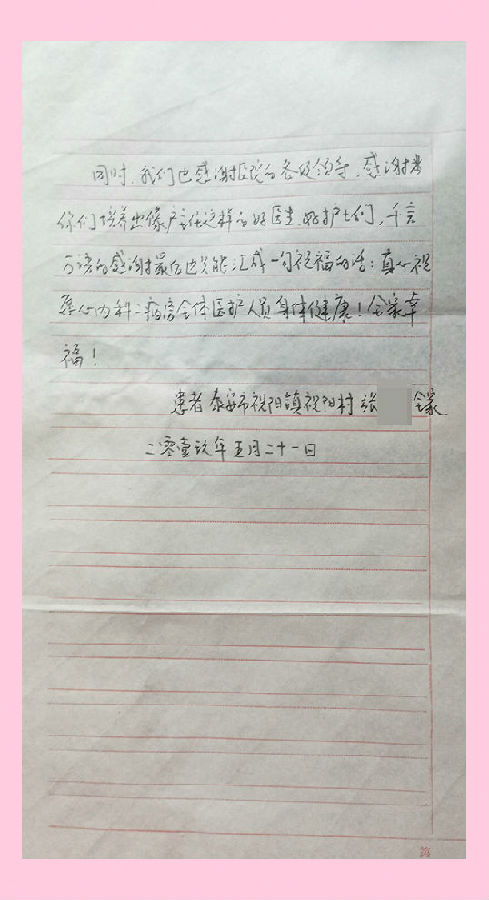 同时,我们也感谢医院的各级领导,感谢着
你们培养出像卢主任这样的好医生,好护士们,千言
万语的感谢最后也只能汇成一句祝福的话:真心祝
愿心内科二病房全体医护人员身体健康!全家幸
福!
患者 泰安市祝阳镇祝阳村 张 全家
二零壹玖年五月二十一日